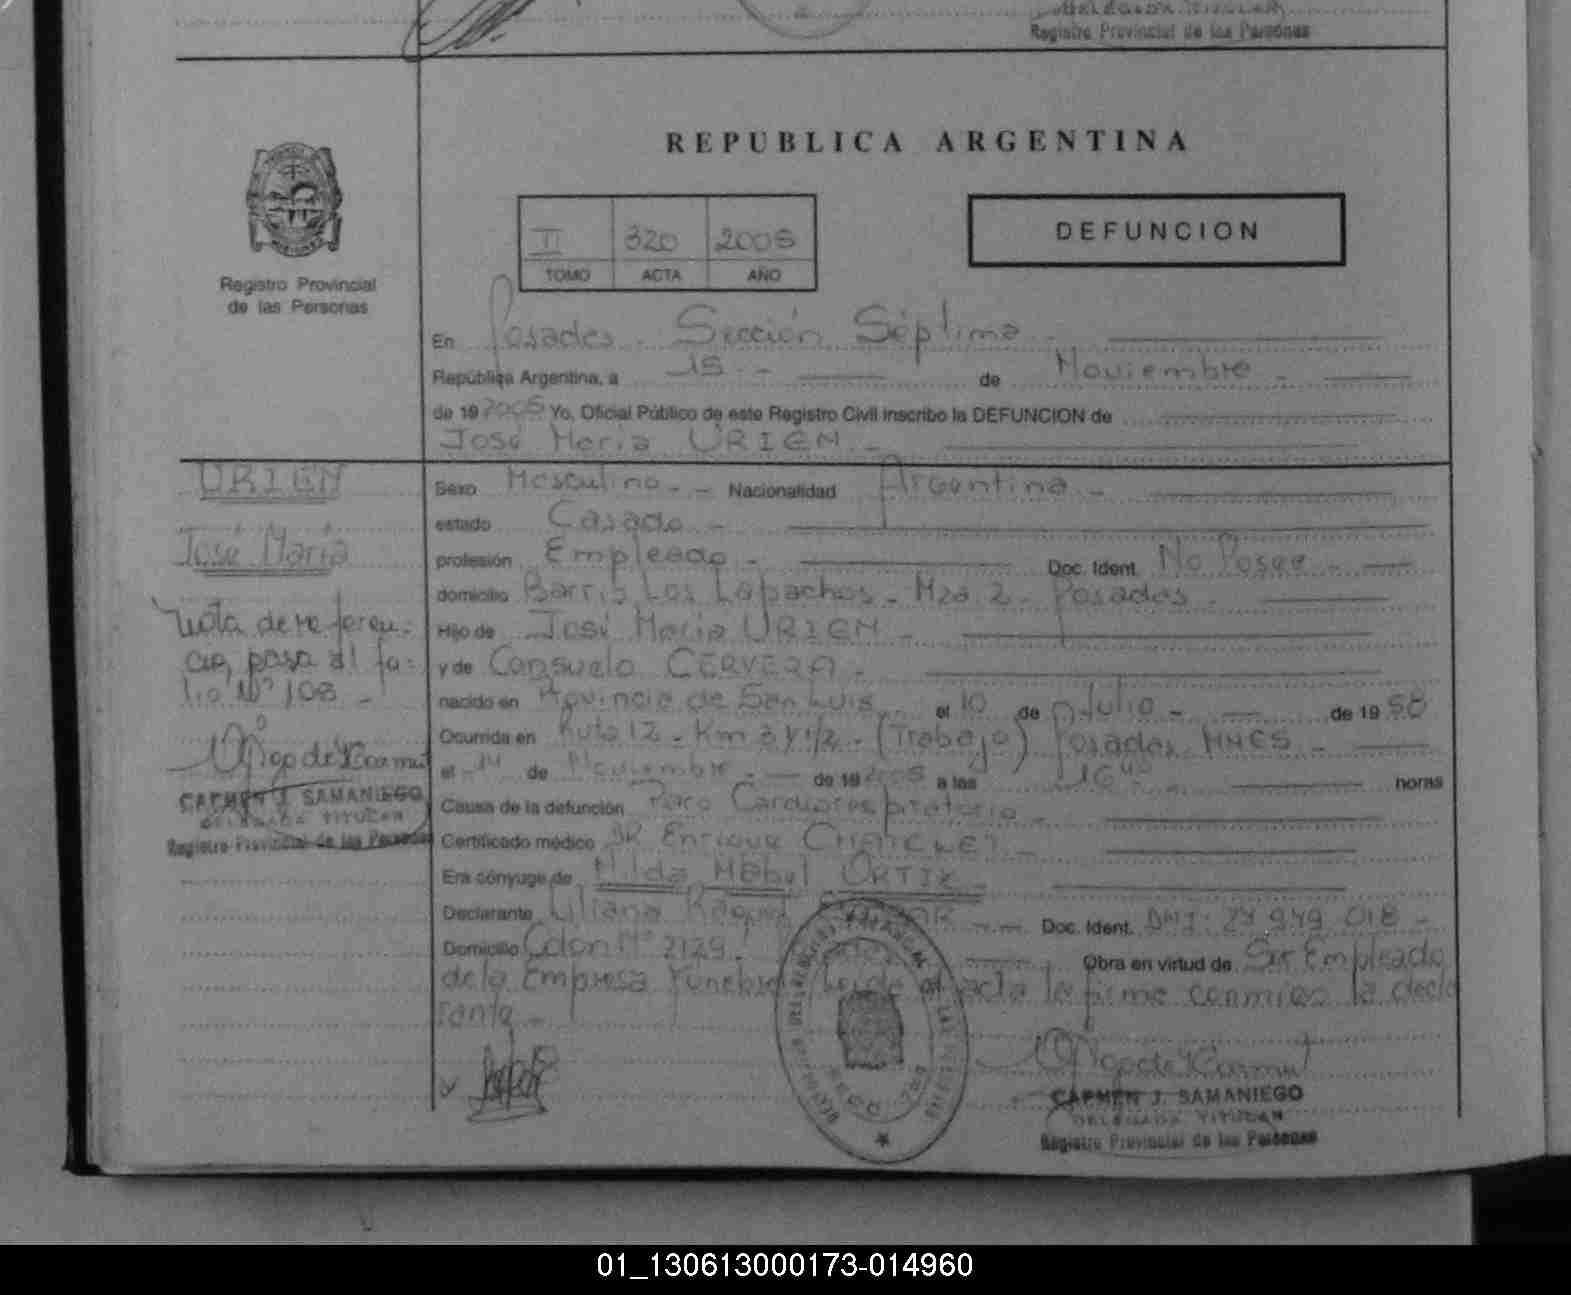 DELEGADA TITULAR
Registro Provincial de las Personas
REPUBLICA ARGENTINA
II 320 2005
TOMO ACTA AÑO
DEFUNCION
Registro Provincial
de las Personas
En Posadas. Sección Séptima
República Argentina, a 15 - de Noviembre -
de 19 2005 Yo, Oficial Público de este Registro Civil inscribo la DEFUNCION de
José María URIEN -
URIEN
José María
Nota de referen=
cia, pasa al fo=
lio Nº 108 -
CARMEN J. SAMANIEGO
DELEGADA TITULAR
Registro Provincial de las Personas
Sexo Masculino - - Nacionalidad Argentina -
estado Casado -
profesión Empleado - Doc. Ident. No Posee -
domicilio Barrio Los Lapachos - Mza 2 - Posadas.
Hijo de José María URIEN -
y de Consuelo CERVERA -
nacido en Provincia de San Luis el 10 de Julio - de 19 58
Ocurrida en Ruta 12 - Km 3 y 1/2 - (Trabajo) Posadas MNES -
el 14 de Noviembre - de 19 2005 a las 16 horas
Causa de la defunción Paro Cardiorespiratorio -
Certificado médico DR Enrique
Era cónyuge de Hilda Mabel ORTIZ -
Declarante Liliana Raquel Doc. Ident. DNI: 27 949 018 -
Domicilio Colon Nº 2129. Obra en virtud de Ser Empleado
de la Empresa Funebre. Leida el acta la firme conmigo la decla
rante -
CARMEN J. SAMANIEGO
DELEGADA TITULAR
Registro Provincial de las Personas
01_130613000173-014960